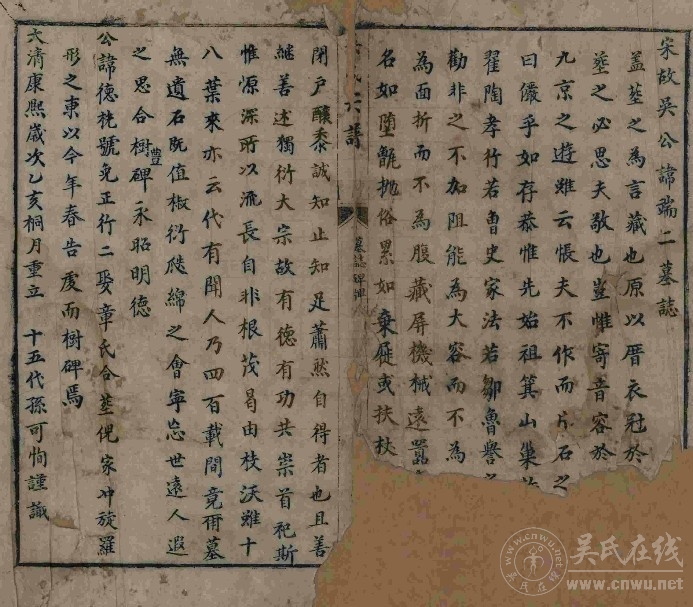 宋故吳公諱端二墓誌
盖塟之為言藏也原以厝衣冠於
塟之必思夫敬也豈惟寄音容於
九京之遊雖云悵夫不作而片石之
曰儼乎如存恭惟先始祖箕山巢
翟陶孝行若魯史家法若鄒魯譽
勸非之不加阻能為大容而不為
為面折而不為腹藏屏機械遠囂
名如墮甑抛俗累如棄屣或扶杖
墓誌碑
閉户釀黍誠知止知足蕭然自得者也且善
繼善述獨衍大宗故有德有功共崇首祀斯
惟源深所以流長自非根茂曷由枝沃雖十
八葉來亦云代有聞人乃四百載間竟爾墓
無遺石旣值椒衍瓞綿之會寧忘世遠人遐
之思合樹豐碑永昭明德
公諱德 號 正行二娶章氏合塟倪家冲旋羅
形之東以今年春告虔而樹碑焉
大清康熙歲次乙亥桐月重立 十五代孫可恂謹識
吳氏在线
www.cnwu.net